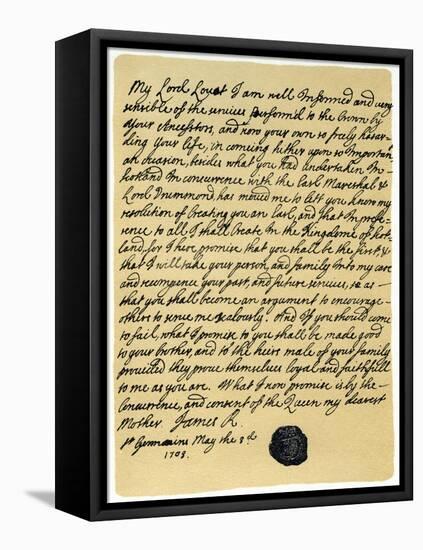 My Lord Lovat I am well Informed and very
sensible of the services perform'd to the Crown by
your Ancestors, and now your own so freely hasar-
ding your life, in comeing hither upon so Important
an ocasion, besids what you had undertaken In
scotland In concurrence with the Earl Mareshal &
Lord Drummond has moved me to lett you know my
resolution of Creating you an Earl, and that In prefe-
rence to all I shall Create In the Kingdome of Scot-
land, for I here promise that you shall be the first, &
that I will take your person, and family Into my care
and recompence your past, and future services, so as
that you shall become an argument to encourage
others to serve me zealously. And If you should come
to fail, what I promise to you shall be made good
to your brother, and to the heirs male of your family
provided they prove themselves loyal and faithfull
to me as you are. What I now promise is by the
Concurrence, and consent of the Queen my dearest
Mother. James R.
St Germains May the 3d.
1703.